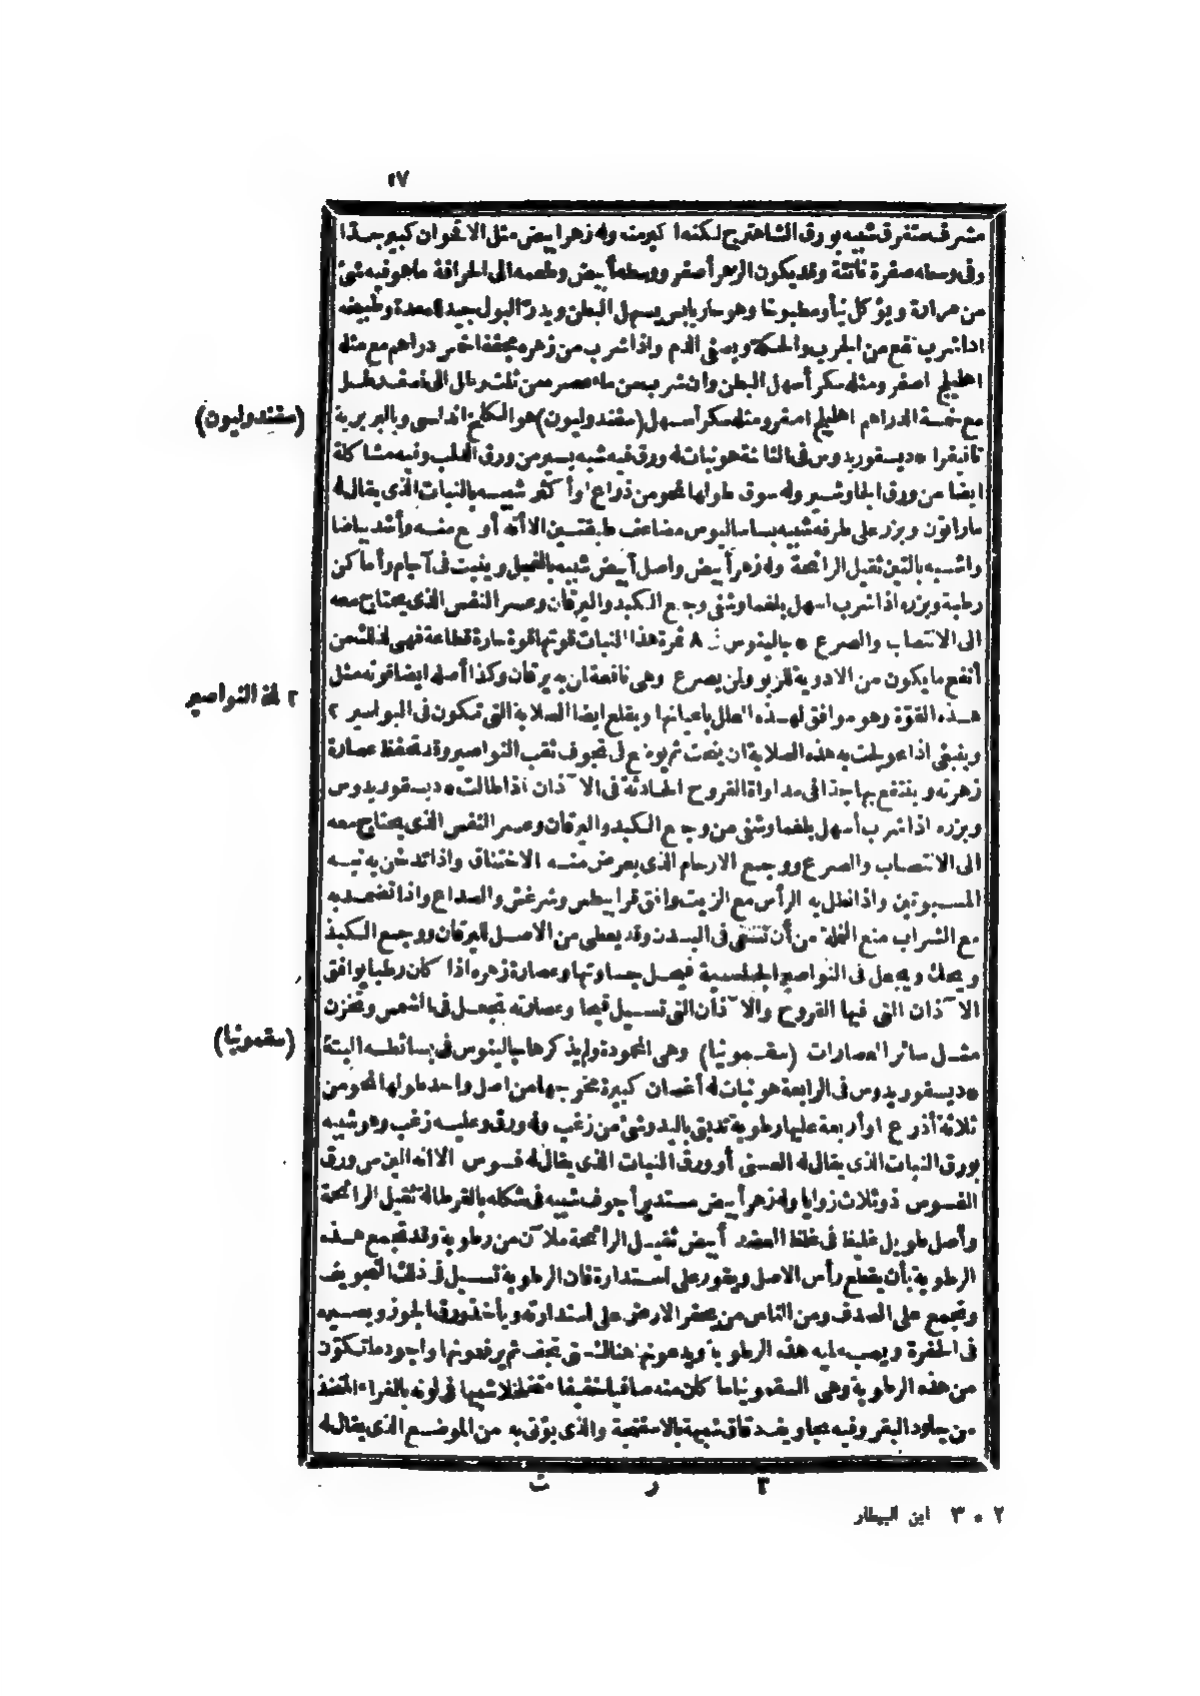 ١٧
مشرف متفرق شبيه بورق الشاهترج لكنه اكبر منه وله زهر ابيض مثل الاقحوان كبير جدا
وفى وسطه صفرة ناتئة وقد يكون الزهر أصفر ووسطه أبيض وطعمه الى الحرافة ما هو فيه شئ
من مرارة ويؤكل نيأ ومطبوخا وهو حار يابس يسهل البطن ويدر البول جيد للمعدة وطبيخه
اذا شرب نفع من الجرب والحكة ويصفى الدم واذا شرب من زهره مجففا خمس دراهم مع مثله
اهليلج اصفر ومثله سكر أسهل البطن وان شرب من ماء عصره من ثلث رطل الى نصف رطل
مع خمسة الدراهم اهليلج اصفر ومثله سكر أسهل (سقندوليون) هو الكلخ اندلسى وبالبربرية
(سقندوليون)
تافيفرا * ديسقوريدوس فى الثالثة هو نبات له ورق فيه شبه يسير من ورق الدلب وفيه مشاكلة
ايضا من ورق الجاوشير وله سوق طولها نحو من ذراع او أكثر شبيه بالنبات الذى يقال له
ماراثون وبزر على طرفه شبيه بساساليوس مضاعف طبقتين الا أنه أوسع منه وأشد بياضا
واشبه بالتين ثقيل الرائحة وله زهر أبيض واصل أبيض شبيه بالفجل وينبت فى آجام وأماكن
رطبة وبزره اذا شرب اسهل بلغما وشفى وجع الكبد واليرقان وعسر النفس الذى يحتاج معه
الى الانتصاب والصرع * جالينوس ٨ ثمرة هذا النبات قوتها قوة حارة قطاعة فهى لذلك من
أنفع ما يكون من الادوية للربو ولمن يصرع وهى نافعة لمن به يرقان وكذا أصله ايضا قوته مثل
هذه القوة وهو موافق لهذه العلل باعيانها ويقلع ايضا الصلابة التى تكون فى البواسير ٢
٢ لخ النواصير
وينبغى اذا عولجت به هذه الصلابة ان ينحت ثم يوضع فى تجوف ثقب النواصير وقد تحفظ عصارة
زهرته وينتفع بها جدا فى مداواة القروح الحادثة فى الآذان اذا طالت * ديسقوريدوس
وبزره اذا شرب أسهل بلغما وشفى من وجع الكبد واليرقان وعسر النفس الذى يحتاج معه
الى الانتصاب والصرع ووجع الارحام الذى يعرض منه الاختناق واذا تدخن به نبه
المسبوتين واذا نطل به الرأس مع الزيت وافق قرانيطس وشرغش والصداع واذا تضمد به
مع الشراب منع النملة من أن تتشى فى البدن وقد يعطى من الاصل لليرقان ووجع الكبد
ويحك ويجعل فى النواصير الجاسية فيحل جساوتها وعصارة زهره اذا كان رطبا يوافق
الآذان التى فيها القروح والآذان التى تسيل قيحا وعصارته تجعل فى الشمس وتخزن
مثل سائر العصارات (سقمونيا) وهى المحمودة ولم يذكرها جالينوس فى بسائطه البتة
(سقمونيا)
* ديسقوريدوس فى الرابعة هو نبات له أغصان كبيرة مخرجها من اصل واحد طولها نحو من
ثلاثة أذرع او أربعة عليها رطوبة تدبق باليد وشئ من زغب وله ورق وعليه زغب وهو شبيه
بورق النبات الذى يقال له العسنى أو ورق النبات الذى يقال له قسوس الا انه الين من ورق
القسوس ذو ثلاث زوايا وله زهر أبيض مستدير أجوف شبيه فى شكله بالقرطالة ثقيل الرائحة
وأصل طويل غليظ فى غلظ العضد أبيض ثقيل الرائحة ملآن من رطوبة وقد تجمع هذه
الرطوبة بأن يقطع رأس الاصل ويقور على استدارة فان الرطوبة تسيل فى ذلك التجويف
وتجمع على الصدف ومن الناس من يحفر الارض على استدارته ويأخذ ورق الجوز ويصيره
فى الحفرة ويصب عليه هذه الرطوبة ويدعونها هنالك حتى تجف ثم يرفعونها واجود ما تكون
من هذه الرطوبة وهى السقمونيا ما كان منه صافيا خفيفا متخلخلا شبيها فى لونه بالغراء المتخذ
من جلود البقر وفيه تجاويف دقاق شبيهة بالاسفنجة والذى يؤتى به من الموضع الذى يقال له
٣ ر ت
٢ * ٣ ابن البيطار